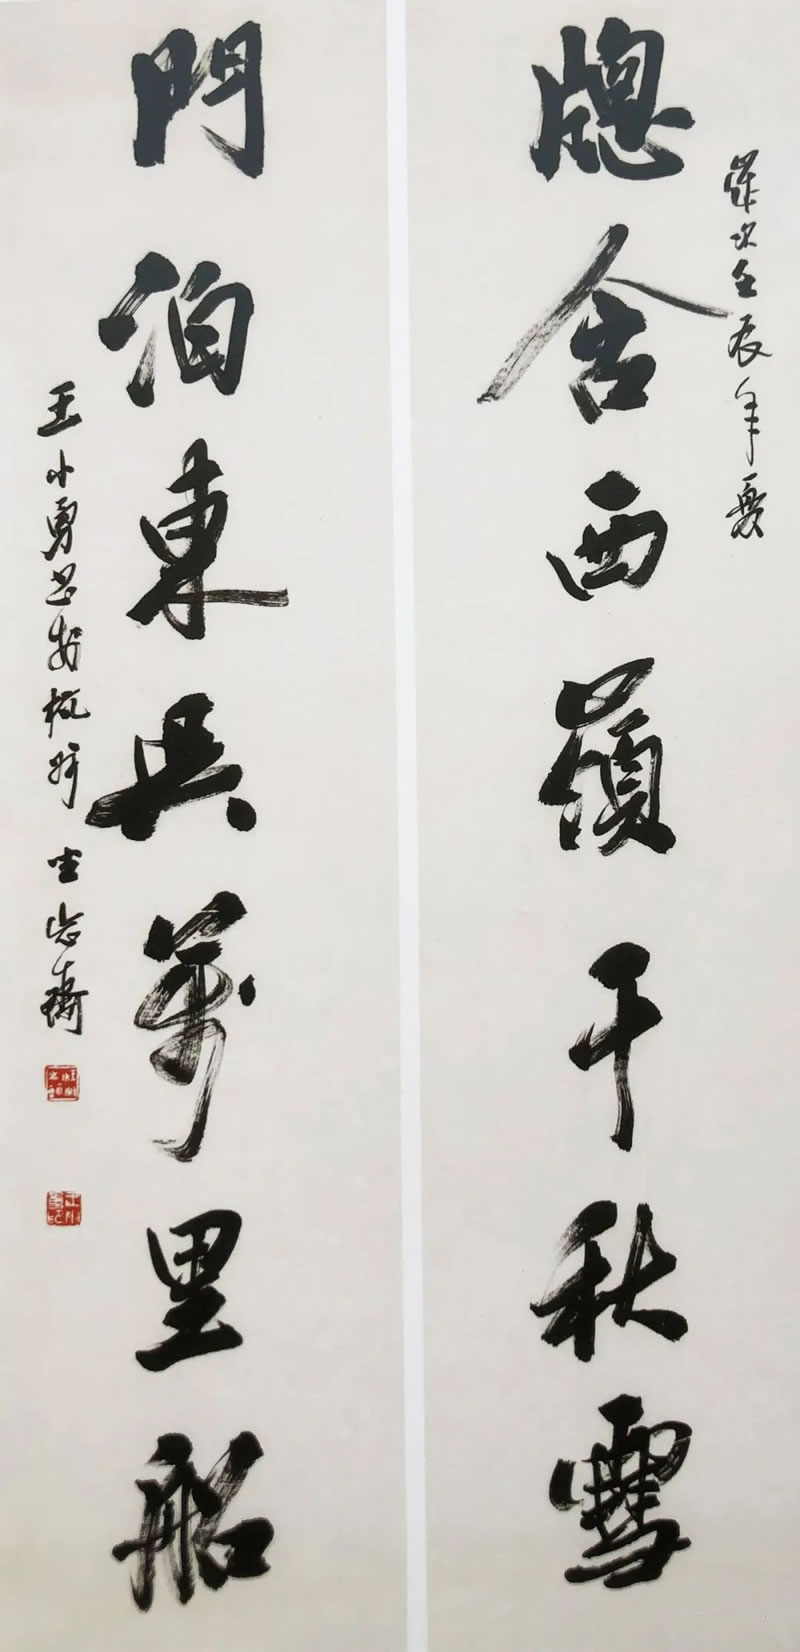 歲次壬辰年夏
牕含西嶺千秋雪
門泊東吳萬里船
王小勇书於杭州坐忘齋